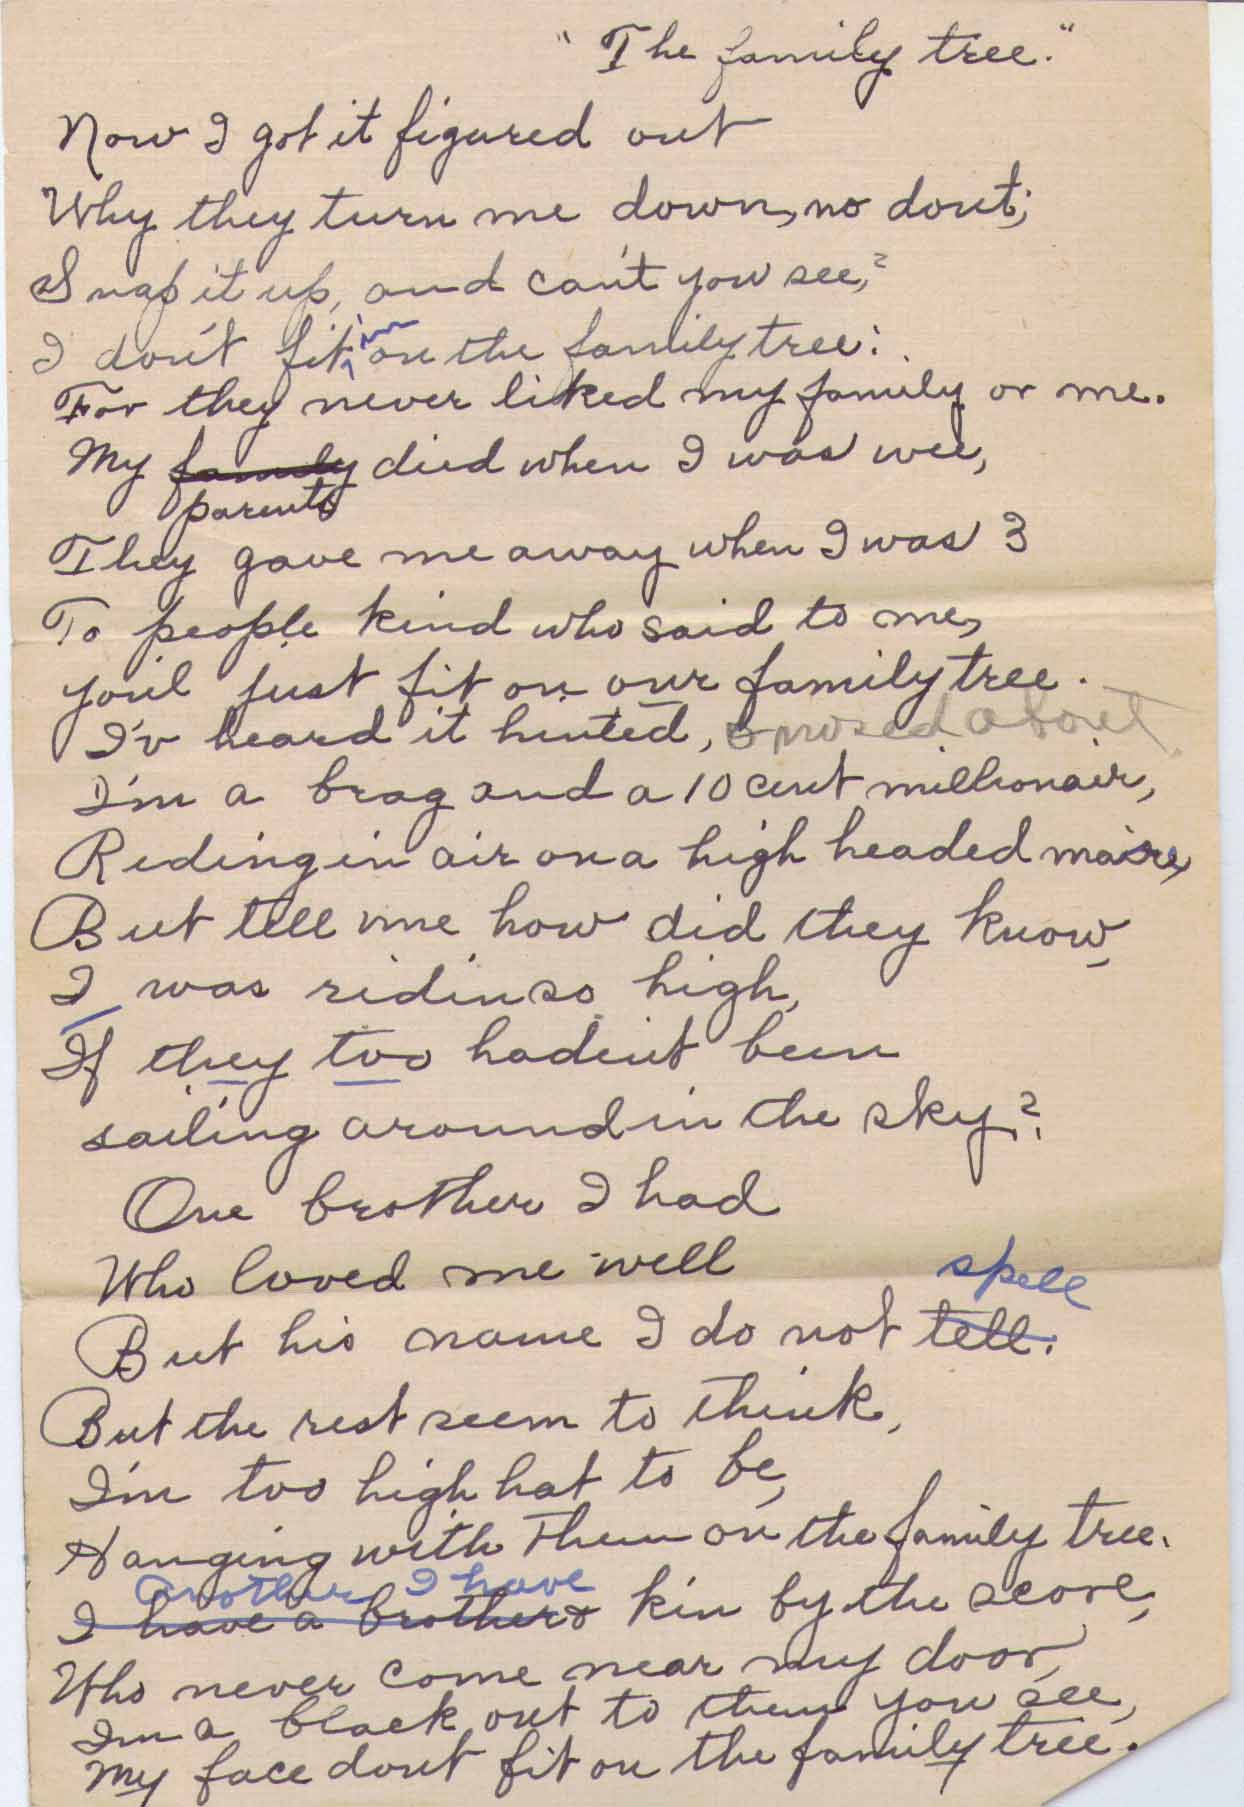 "The family tree."
Now I got it figured out
Why they turn me down, no dout;
Snap it up, and can't you see,?
I don't fit in on the family tree.
For they never liked my family or me.
My family died when I was wee,
parents
They gave me away when I was 3
To people kind who said to me,
you'l just fit on our family tree.
I'v heard it hinted, & nosed about.
I'm a brag and a 10 cent millionair,
Riding in air on a high headed maire,
But tell me how did they know,
I was ridin so high,
If they too hadent been
sailing around in the sky?
One brother I had
Who loved me well
spell
But his name I do not tell.
But the rest seem to think,
I'm too high hat to be,
Hanging with them on the family tree.
Another I have
I have a brother & kin by the score,
Who never come near my door,
I'm a black out to them you see,
My face dont fit on the family tree.